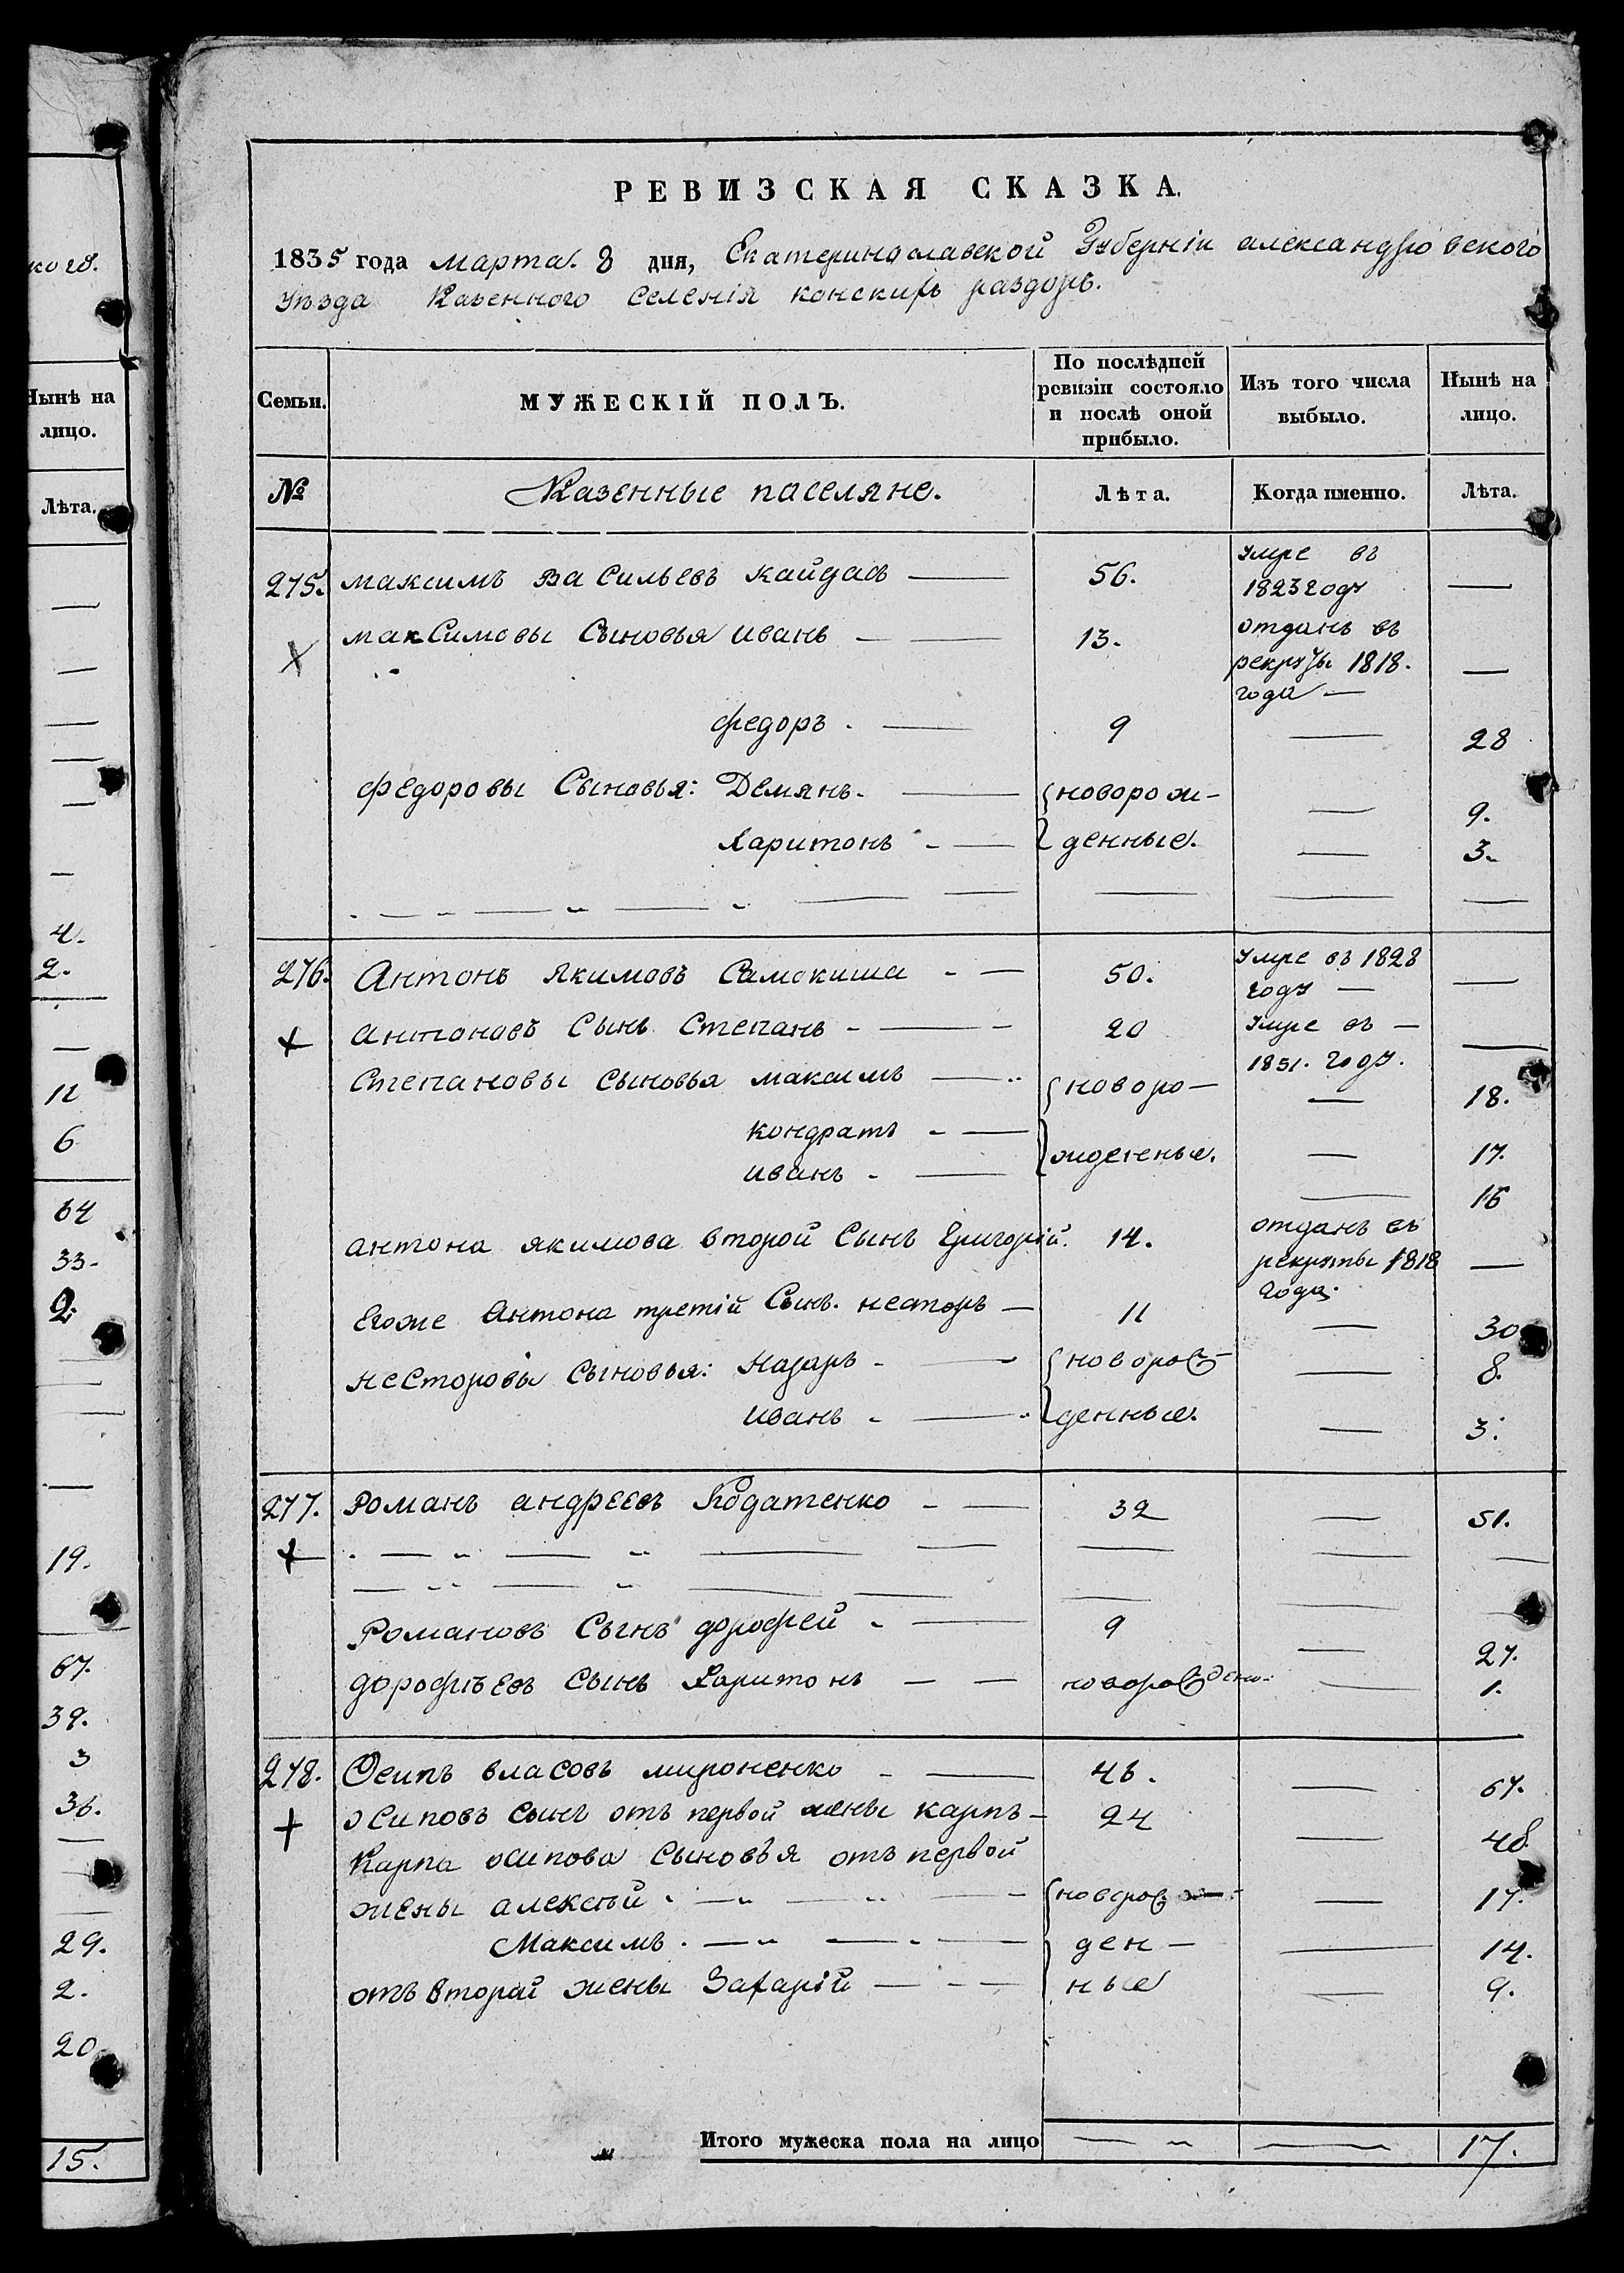 коѵ.
Нынѣ на
лицо.
Лѣта.
4.
2.
11
6
64
33.
2.
19.
67.
39.
3
36.
29.
2.
20.
15.
РЕВИЗСКАЯ СКАЗКА.
1835 года марта 8 дня, Екатеринославской Губерніи александровского
Уѣзда Казенного Селенія конскихъ раздоръ.
Семьи. МУЖЕСКІЙ ПОЛЪ. По послѣдней ревизіи состояло и послѣ оной прибыло. Изъ того числа выбыло. Нынѣ на лицо.
№ Казенные паселяне. Лѣта. Когда именно. Лѣта.
275. максимъ Васильевъ Кайдашъ — 56. умре въ 1823 году —
максимовы Сыновья иванъ — 13. отданъ въ рекруты 1818. года —
федоръ. — 9 — 28
федоровы Сыновья: Демянъ. — новорож- — 9.
Харитонъ — денные. — 3.
276. Антонъ Якимовъ Самокиша — 50. Умре въ 1828 году — —
антоновъ Сынъ Степанъ — 20 умре въ — 1831. году. —
Степановы сыновья максимъ — новоро- — 18.
кондратъ — — 17.
иванъ — жденные. — 16
антона якимова второй Сынъ Григорій. 14. отданъ въ рекруты 1818 года. —
Егоже Антона третій Сынъ. несторъ — 11 — 30
несторовы Сыновья: Назаръ — новорож- — 8.
иванъ — денные. — 3.
277. Романъ андреевъ Кодатенко — 32 — 51.
Романовъ Сынъ дорофей — 9 — 27.
дорофѣевъ Сынъ Харитонъ — новорождено. — 1.
278. Осипъ власовъ мироненко — 46. — 67.
осиповъ сынъ отъ первой жены карпъ — 24 — 48
Карпа осипова Сыновья отъ первой
жены алексѣй — новорож- — 17.
Максимъ. — ден- — 14.
отъ второй жены Захарій — ные — 9.
Итого мужеска пола на лицо — — 17.